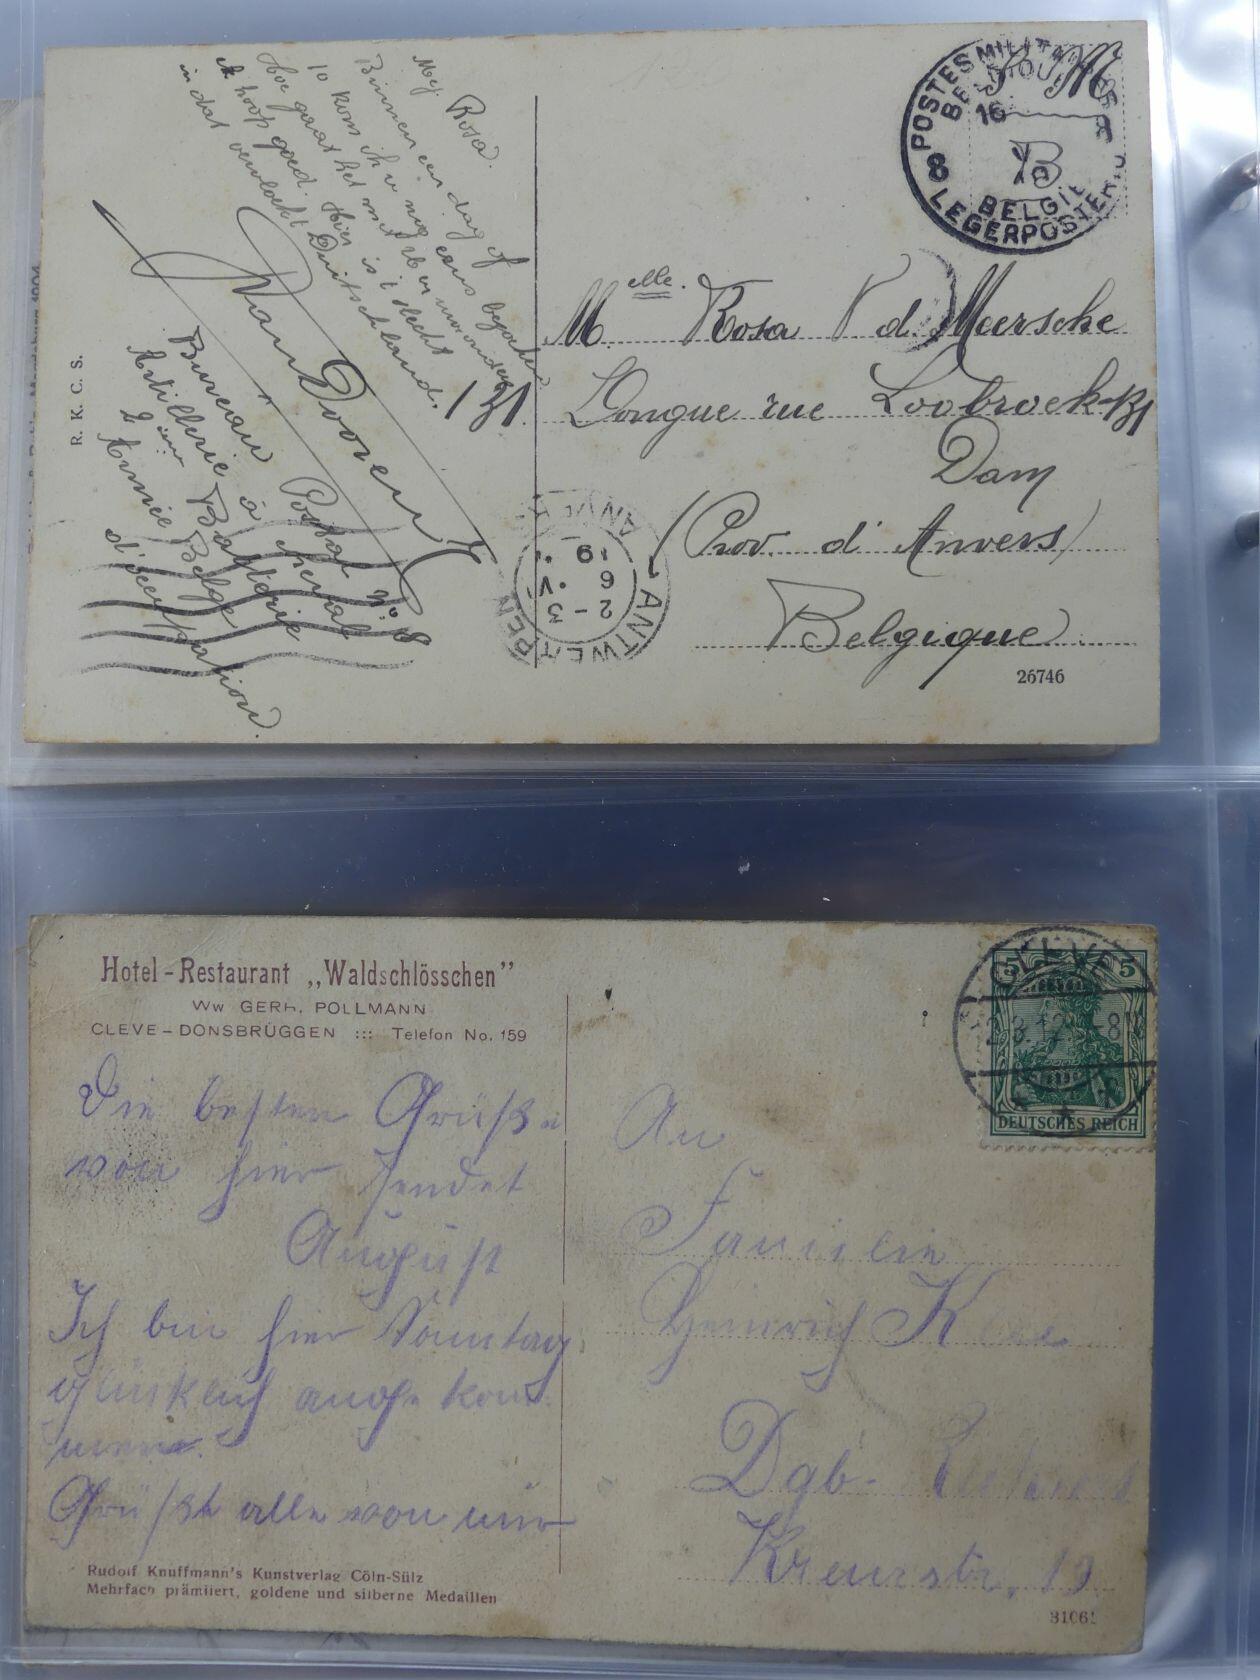 Mej. Rosa.
Binnen een dag of
10 kom ik u nog eens bezoeken
Hoe gaat het met u en
ik hoop goed. Hier is 't slecht
in dat verloekt Duitschland.
Van Dooren
Bureau Postal No. 8
Artillerie à cheval
2ième Batterie
Armée Belge
d'occupation.
R. K. C. S.
131.
POSTES MILITAIRES
BELGIQUE
S. M.
16
8
BELGIË
LEGERPOSTERIJ
Melle. Rosa V d. Meersche
Longue rue Loobroek 131
Dam
(Prov. d'Anvers)
Belgique
ANTWERPEN
ANVERS
2-3
6 V
19
26746
Hotel-Restaurant „Waldschlösschen"
Ww GERH. POLLMANN
CLEVE-DONSBRÜGGEN ::: Telefon No. 159
Die besten Grüße
von hier sendet
August
Ich bin hier Sonntag
glücklich angekom
men.
Grüßt alle von mir
Rudolf Knuffmann's Kunstverlag Cöln-Sülz
Mehrfach prämiiert, goldene und silberne Medaillen
CLEVE
5 5
DEUTSCHES REICH
An
Familie
Heinrich
Dgb-
Kreuzstr. 19